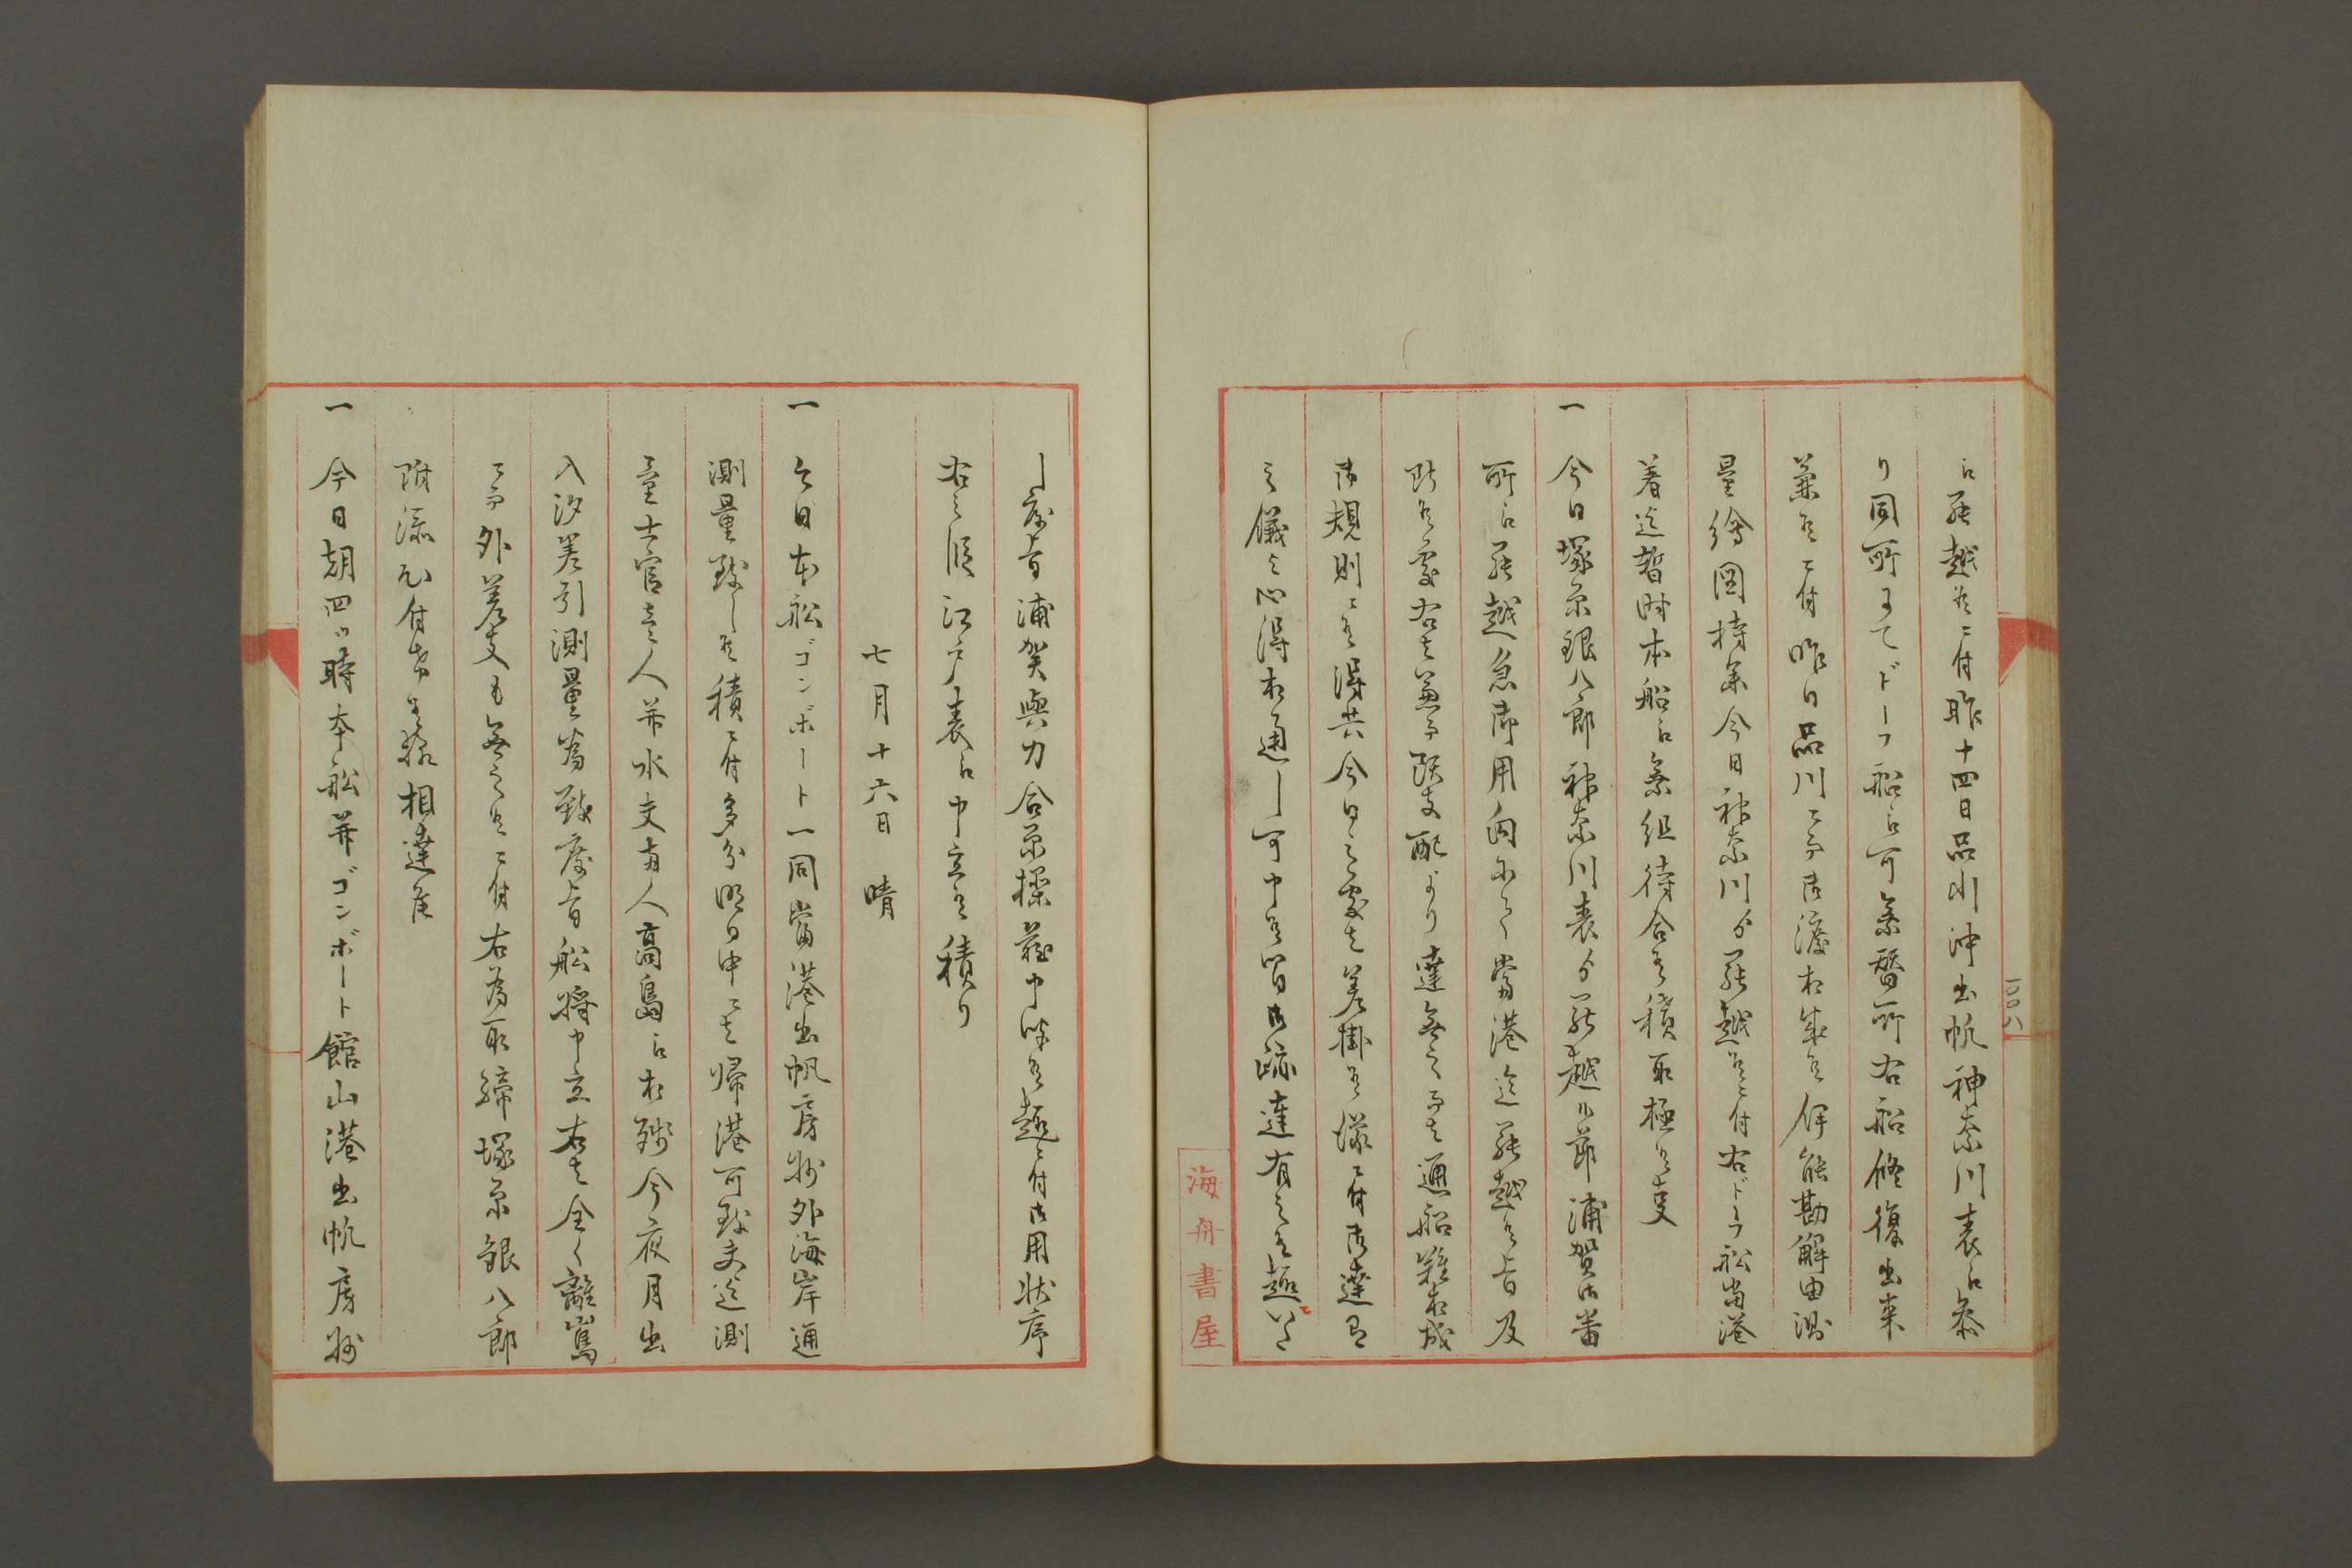 一〇〇八
罷越候ニ付昨十四日品川沖出帆神奈川表江参
り同所ニてドーフ船江可乗替所右船修復出来
兼候ニ付昨日品川ニ而御渡相成候伊能勘解由測
量繪図持参今日神奈川ゟ罷越候ニ付右ドーフ船当港
着迄暫時本船江乗組待合候積取極候事
一 今日塚原銀八郎神奈川表ゟ罷越候節浦賀御番
所江罷越急御用向ニて當港迄罷越候旨及
断候處右者兼而頭支配より達無之而者通船難相成
御規則ニ候得共今日之處者差掛候儀ニ付御達有
之儀と心得相通し可申候間御疏達有之候趣
し度旨浦賀與力合原操蔵申談候趣ニ付御用状序
右之段江戸表江申立候積り
七月十六日 晴
一 今日本船ゴンボート一同當港出帆房州外海岸通
測量致し候積ニ付多分明日中ニ者帰港可致夫迄測
量士官壱人并水夫両人高島江相残今夜月出
入汐差引測量為致度旨船将申立右者全く離嶌
ニ而外差支も無之候ニ付右為取締塚原銀八郎
附添
相達候
一 今日朝四ツ時本船并ゴンボート館山港出帆房州
海舟書屋